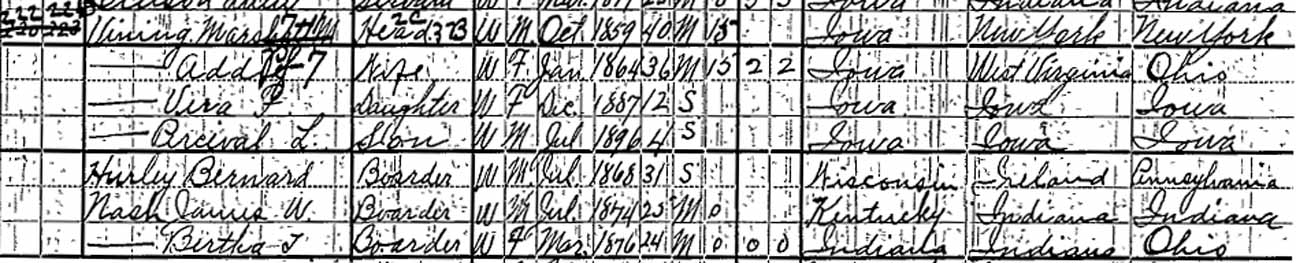 Servant W F Mar 1877 23 M 0 3 3 Iowa Indiana Indiana
Vining Head W M Oct 1859 40 M 15 Iowa New York New York
— Wife W F Jan 1864 36 M 15 2 2 Iowa West Virginia Ohio
— Vera F. Daughter W F Dec 1887 12 S Iowa Iowa Iowa
— Percival L. Son W M Jul 1896 4 S Iowa Iowa Iowa
Hurley Bernard Boarder W M Jul 1868 31 S Wisconsin Ireland Pennsylvania
Nash James W. Boarder W M Jul 1874 25 M 0 Kentucky Indiana Indiana
— Bertha T Boarder W F Mar 1876 24 M 0 0 0 Indiana Indiana Ohio